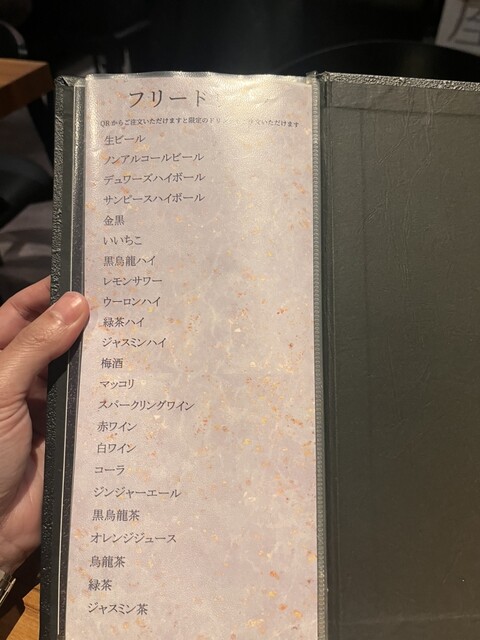 フリード
QRからご注文いただけますと限定のドリ
いただけます
生ビール
ノンアルコールビール
デュワーズハイボール
サンピースハイボール
金黒
いいちこ
黒烏龍ハイ
レモンサワー
ウーロンハイ
緑茶ハイ
ジャスミンハイ
梅酒
マッコリ
スパークリングワイン
赤ワイン
白ワイン
コーラ
ジンジャーエール
黒烏龍茶
オレンジジュース
烏龍茶
緑茶
ジャスミン茶